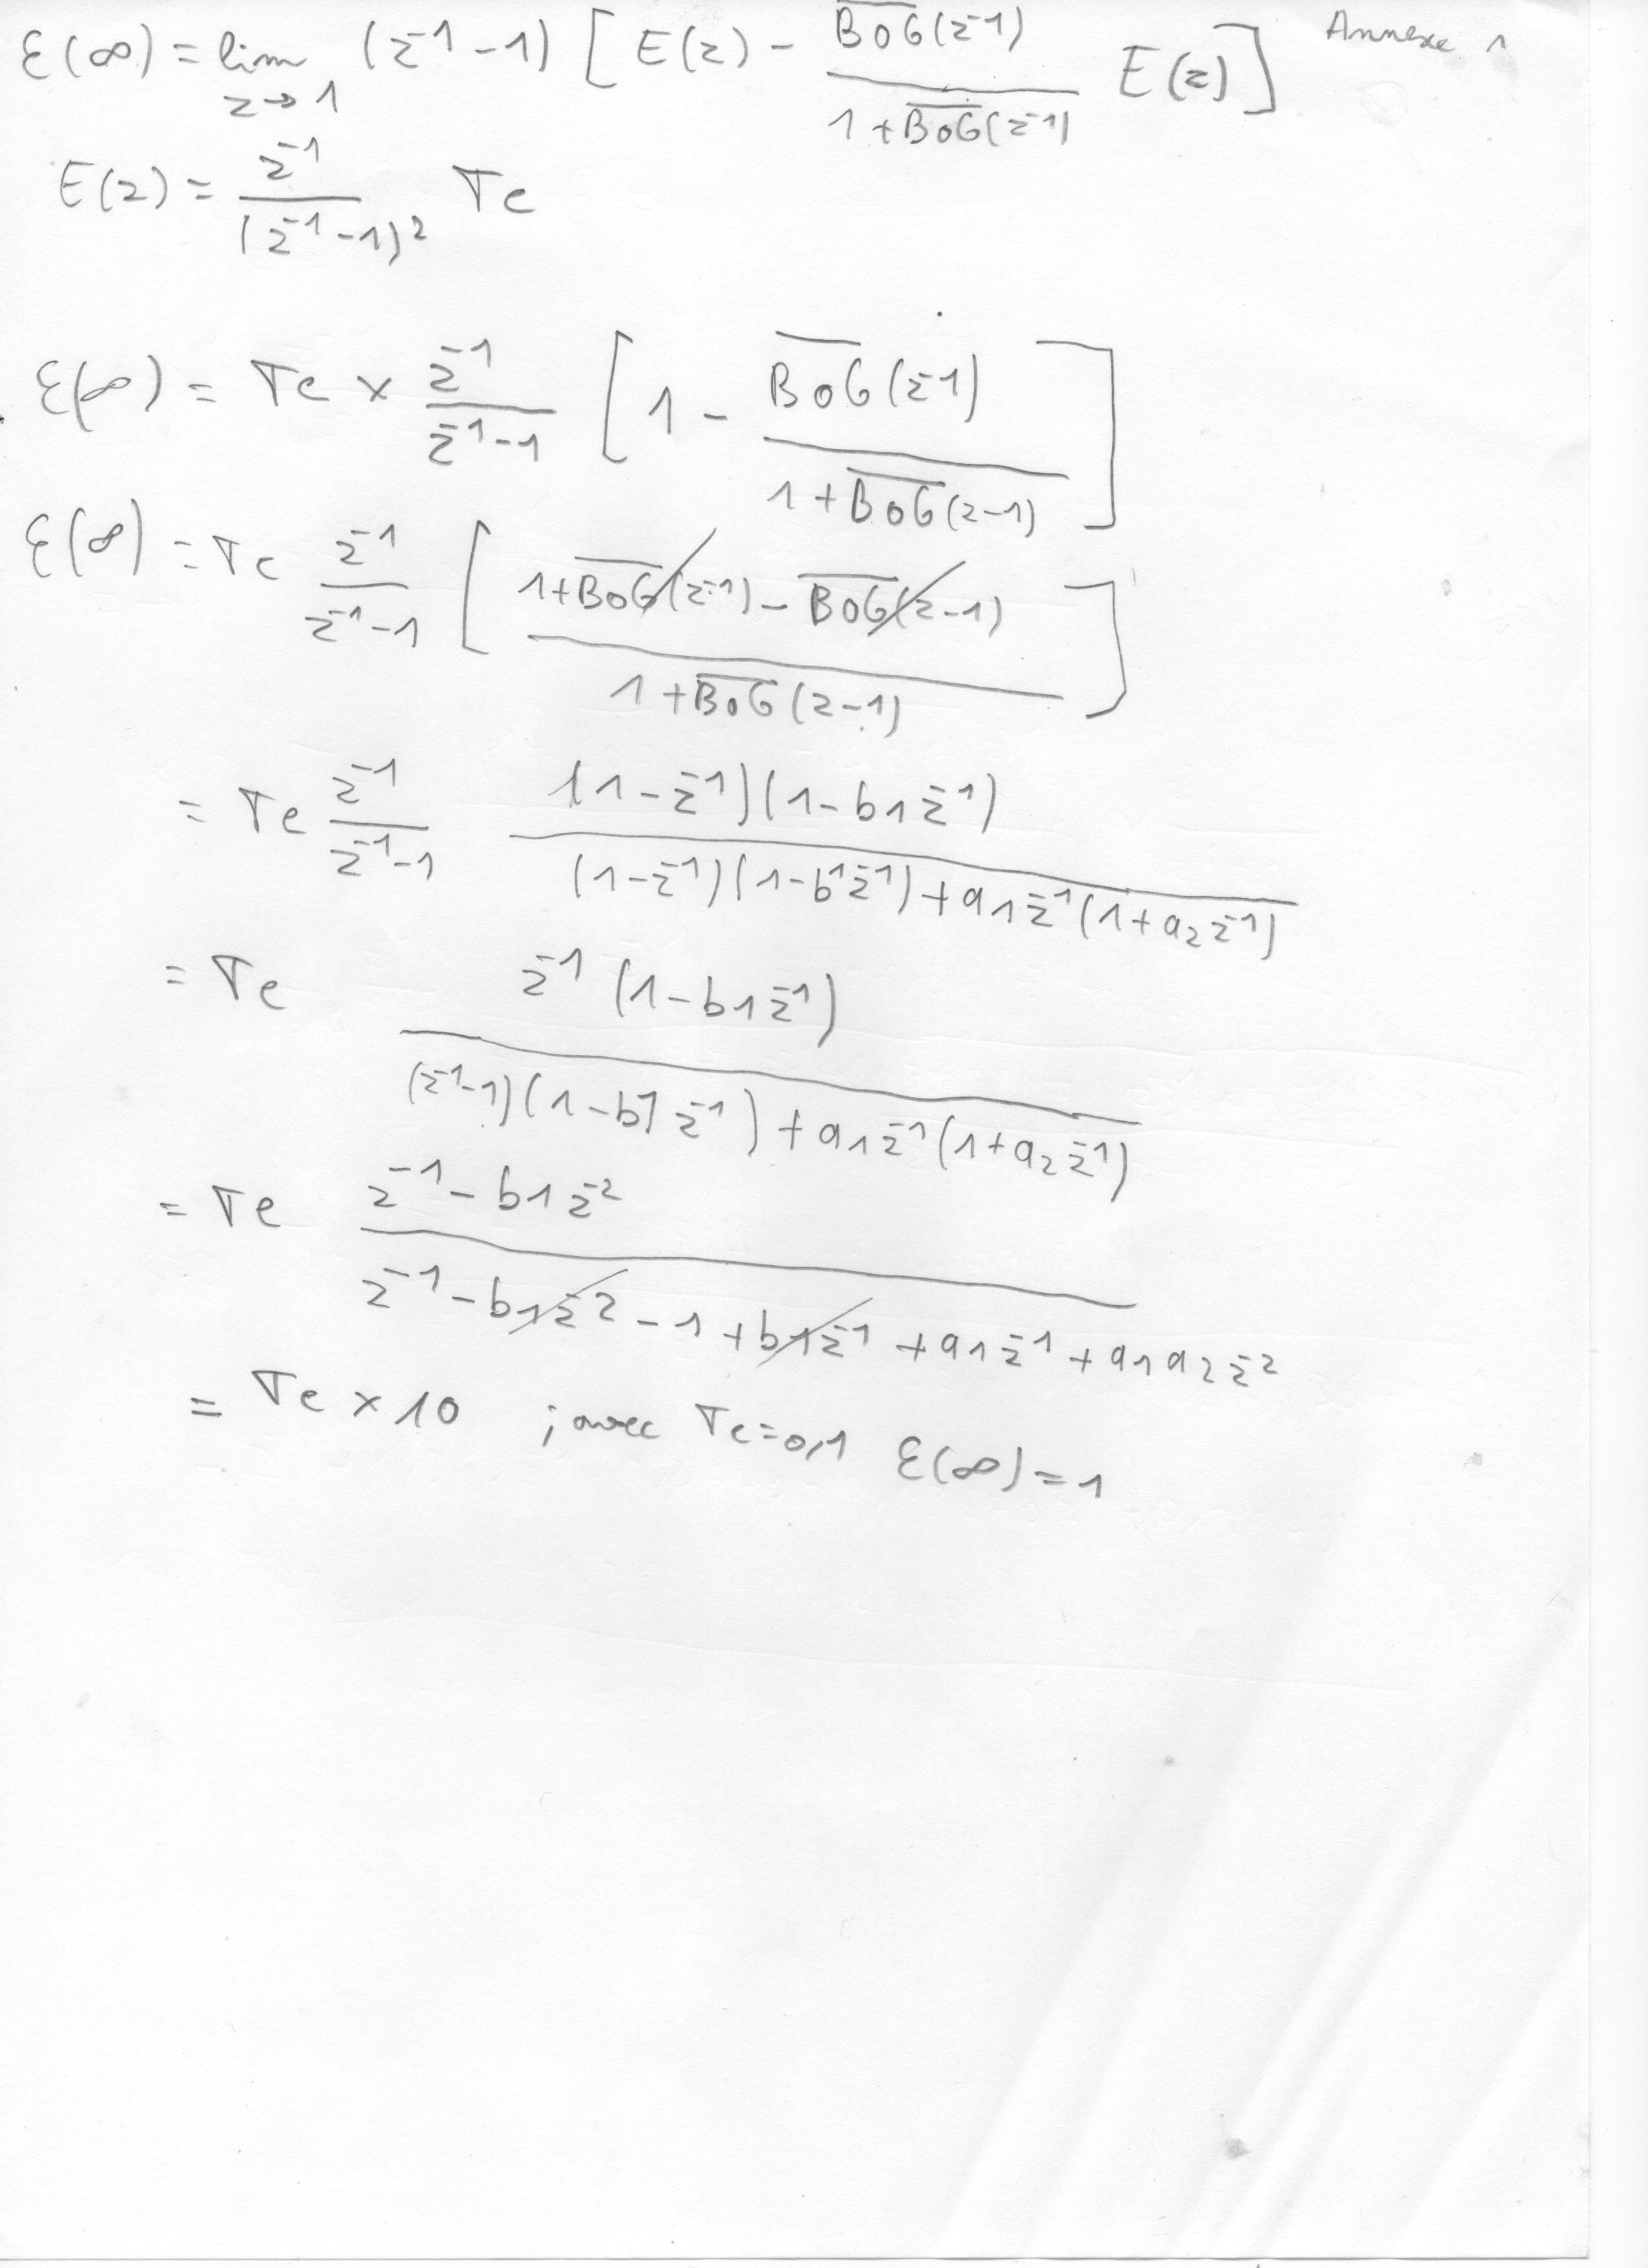 Annexe 1
ε(∞) = lim z→1 (z⁻¹-1) [ E(z) - B₀G(z⁻¹) / 1+B₀G(z⁻¹) E(z) ]
E(z) = z⁻¹ / (z⁻¹-1)² Te
ε(∞) = Te × z⁻¹ / z⁻¹-1 [ 1 - B₀G(z⁻¹) / 1+B₀G(z-1) ]
ε(∞) = Te z⁻¹ / z⁻¹-1 [ 1+B₀G(z⁻¹) - B₀G(z-1) / 1+B₀G(z-1) ]
= Te z⁻¹ / z⁻¹-1 (1-z⁻¹)(1-b1z⁻¹) / (1-z⁻¹)(1-b1z⁻¹)+a1z⁻¹(1+a2z⁻¹)
= Te z⁻¹(1-b1z⁻¹) / (z⁻¹-1)(1-b1z⁻¹)+a1z⁻¹(1+a2z⁻¹)
= Te z⁻¹-b1z⁻² / z⁻¹-b1z⁻²-1+b1z⁻¹+a1z⁻¹+a1a2z⁻²
= Te × 10 ; avec Te=0,1 ε(∞)=1